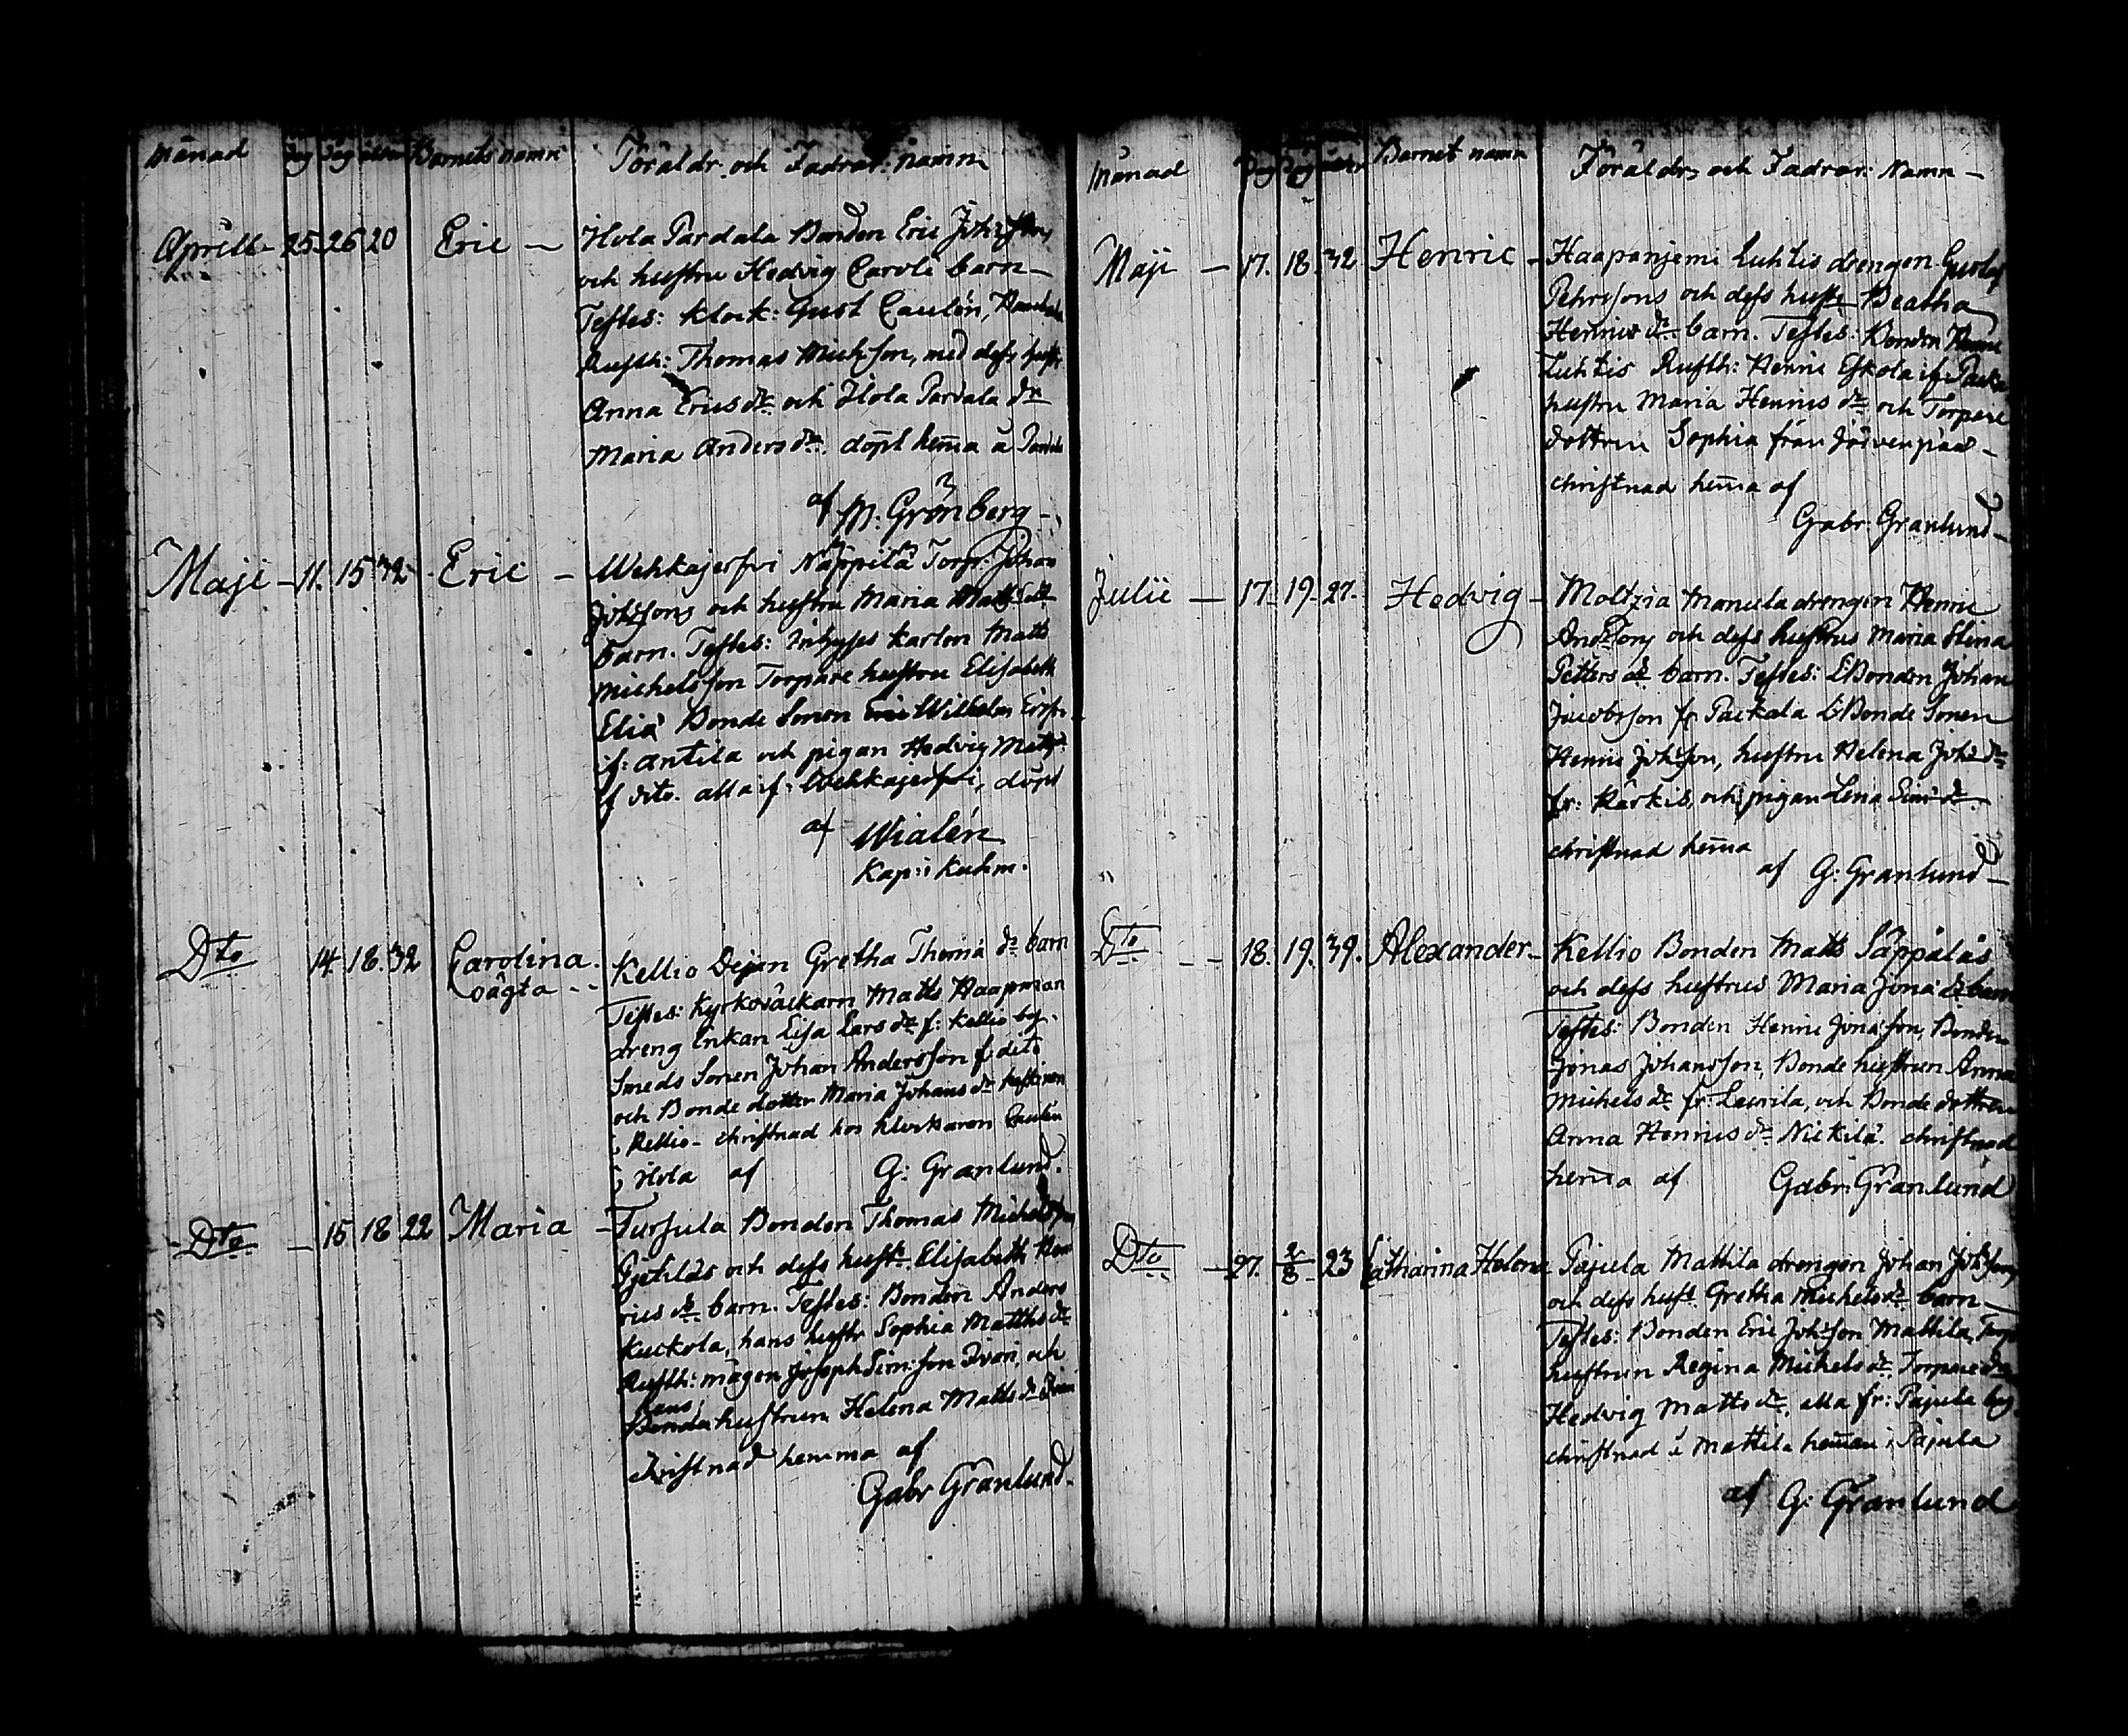 Månad dag dag Barnets namn Föräldr. och Fadrar: namn
Aprill - 25. 26 20 Eric - Ihola Pardala Bonden Eric Joh:
och hustru Hedvig Caroli barn -
Testes: klock: Gust Caulén,
Rusth: Thomas Mich:son, med dess
Anna Ericsdr och Ihola Pardala dr
Maria Andersdr. döpt hema å
af M: Grönberg -
Maji - 11. 15 32 - Eric - Wehkajerfvi Näppilä Torp: Johan
Joh:sons och hustru Maria
barn. Testes: Inhyses karlen Matts
Michelsson Torpare hustru Elisabeth
Elia Bonde Sonen Wilhelm
if: Antila och pigan Hedvig
if dito. alla if: Wehkajerfvi, döpt
af Wialén
Kap: i Kuhm.
Dto 14. 18. 32 Carolina. Kellio Dejan Gretha Thomä dr barn
oägta - - Testes: Kyrkoväckarn Matts Haapman
dreng Enkan Lisa Lars dr f: Kellio by.
Smeds Sonen Johan Andersson f: dito
och Bonde dotter Maria Johans dr
i Kellio - christnad hos klockaren Caulén
i Ihola af G: Granlund.
Dto - 15 18 22 Maria - Tursula Bonden Thomas
och dess hustr. Elisabeth Hen
rics dr barn. Testes: Bonden Anders
Kuckola, hans hustr Sophia Matthsdr
Rusth: mågen Joseph Sim:son Ivari, och
hans
hustrun Helena Mattsdr
Kristnad hemma af
Gabr Granlund.
Månad Dag Dag Barnet namn Föräldr. och Fadrar: Namn -
Maji - 17. 18. 32 Henric - Haapanjemi Luhtis drengen Gustaf
Pehrssons och dess hustr Beatha
Henricsdr. barn. Testes: Bonden
Luhtis Rusth: Henric Eskola
hustru Maria Henrics dr och Torpare
dottren Sophia från Järvenpää -
christnad hema af
Gabr: Granlund -
Julii - 17. 19. 27. Hedvig - Moltzia Manula drengen Henric
And:sons och dess hustrus Maria Stina
Petters dr barn. Testes: Bonden Johan
Jacobsson fr Packala Bonde Sonen
Henric Joh:son, hustru Helena Joh: dr
fr: Kärkis, och pigan Lena dr
christnad hema
af G: Granlund -
Dto - - 18. 19. 39. Alexander - Kellio Bonden Matts Säppäläs
och dess hustrus Maria Jona dr barn
Testes: Bonden Henric Jona son, Bonden
Jonas Johansson, Bonde hustrun Anna
Michels dr fr: Laurila, och Bonde dottren
Anna Henricsdr Nickilä. christnad
hema af Gabr: Granlund
Dto - 27. 2/8 - 23 Catharina Helena Pajula Mattila drengen Johan Joh:sons
och dess hust. Gretha Michelsdr barn -
Testes: Bonden Eric Joh:son Mattila, Torp
hustrun Regina Michelsdr Torpare
Hedvig Mattsdr, alla fr: Pajula by
christnad i Mattila heman i Pajula
af G: Granlund